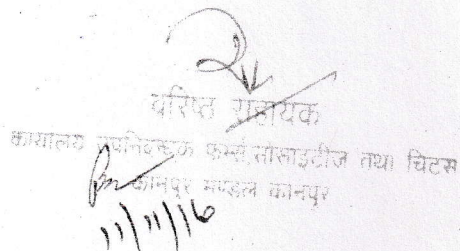 वरिष्ठ सहायक
कार्यालय उपनिबन्धक फर्म्स,सोसाइटीज तथा चिटस
कानपुर मण्डल कानपुर
11/11/16